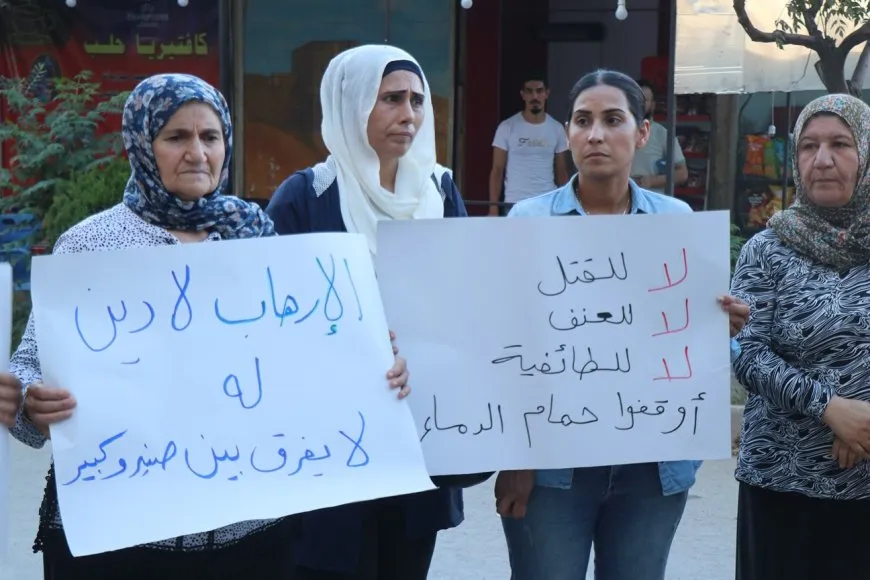 كافتيريا حلب
الإرهاب لا دين
له
لا يفرق بين صغير وكبير
لا للقتل
لا للعنف
لا للطائفية
أوقفوا حمام الدماء